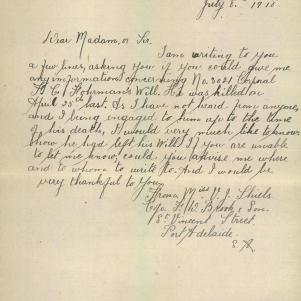 July 8th 1918
Dear Madam, or Sir.
I am writing to you
a few lines, asking you if you could give me
any information concerning No. 3021 Corporal
H. C. Fohrmans Will. He was killed on
April 25th last. As I have not heard from anyone,
and I being engaged to him up to the time
of his death, I would very much like to know
how he had left his Will. If you are unable
to let me know, could you advise me where
and to whom to write to. And I would be
very thankful to You,
From, Miss V. J. Shiels.
C/o. F. W. Brook & Son.
St. Vincent Street.
Port Adelaide.
S.A